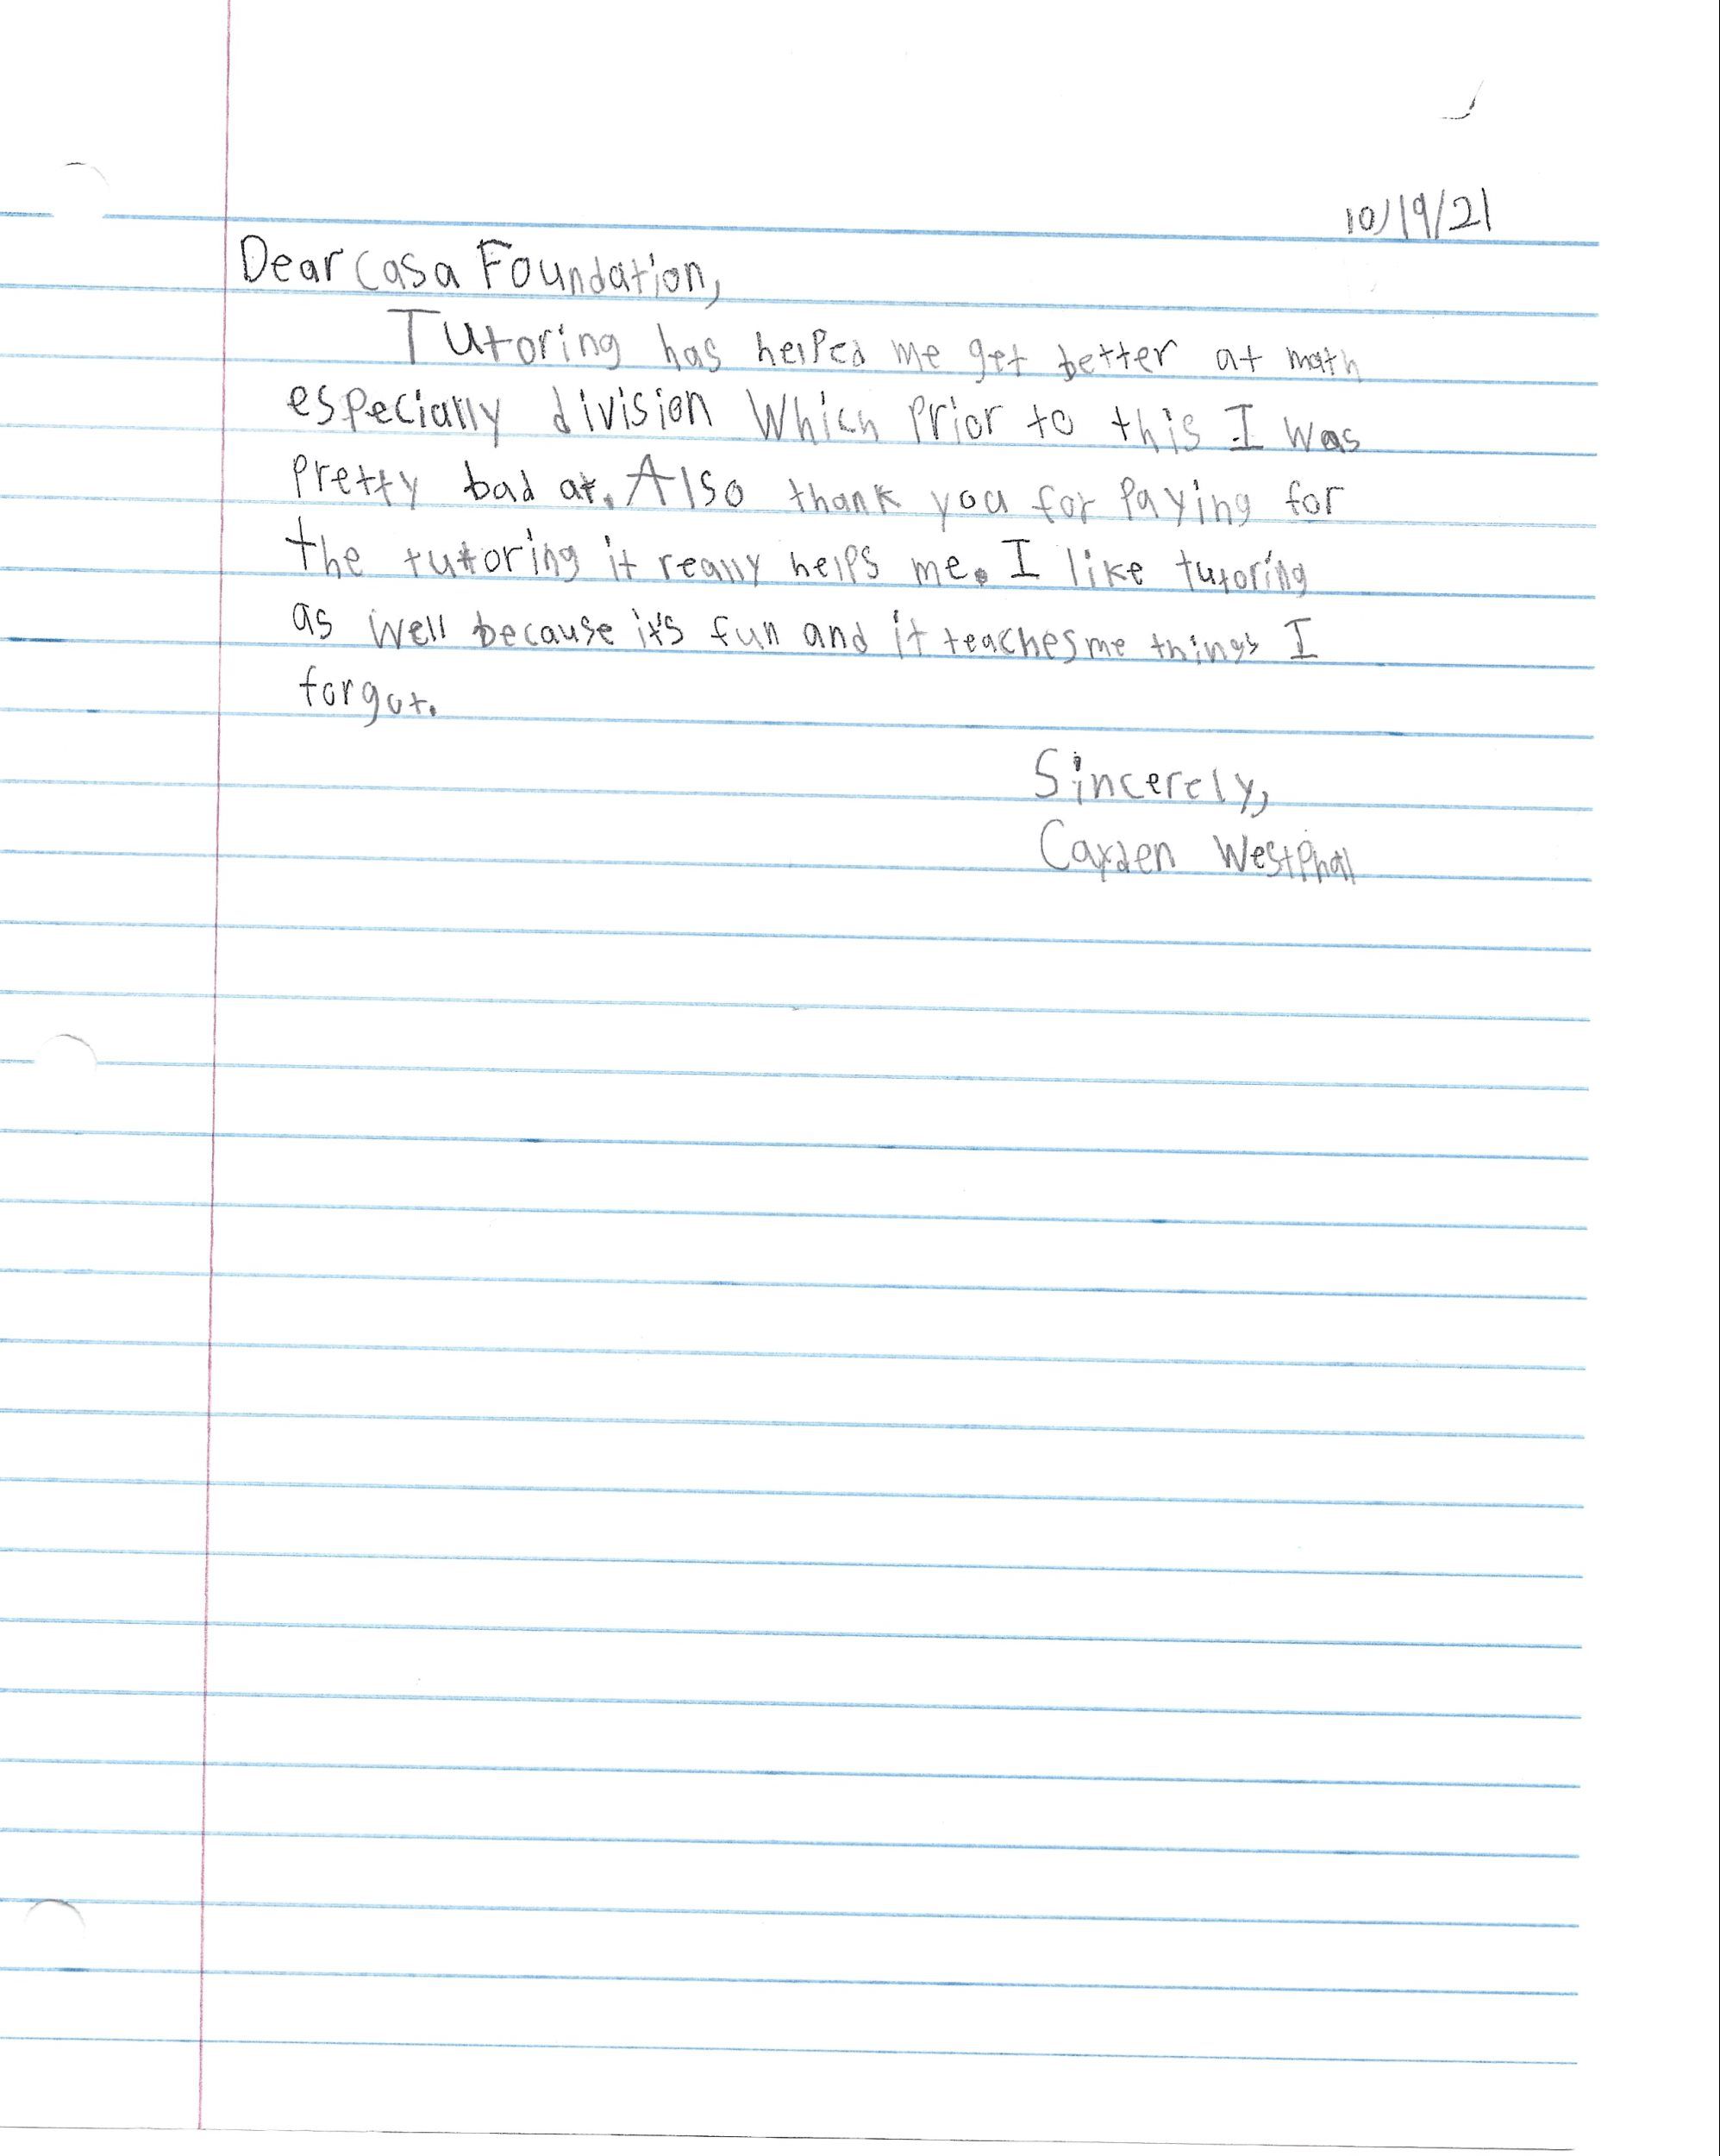 10/19/21
Dear Casa Foundation,
Tutoring has helped me get better at math
especially division Which Prior to this I was
Pretty bad at. Also thank you for Paying for
the tutoring it really helps me. I like tutoring
as well because it's fun and it teaches me things I
forgot.
Sincerely,
Cayden Westphall